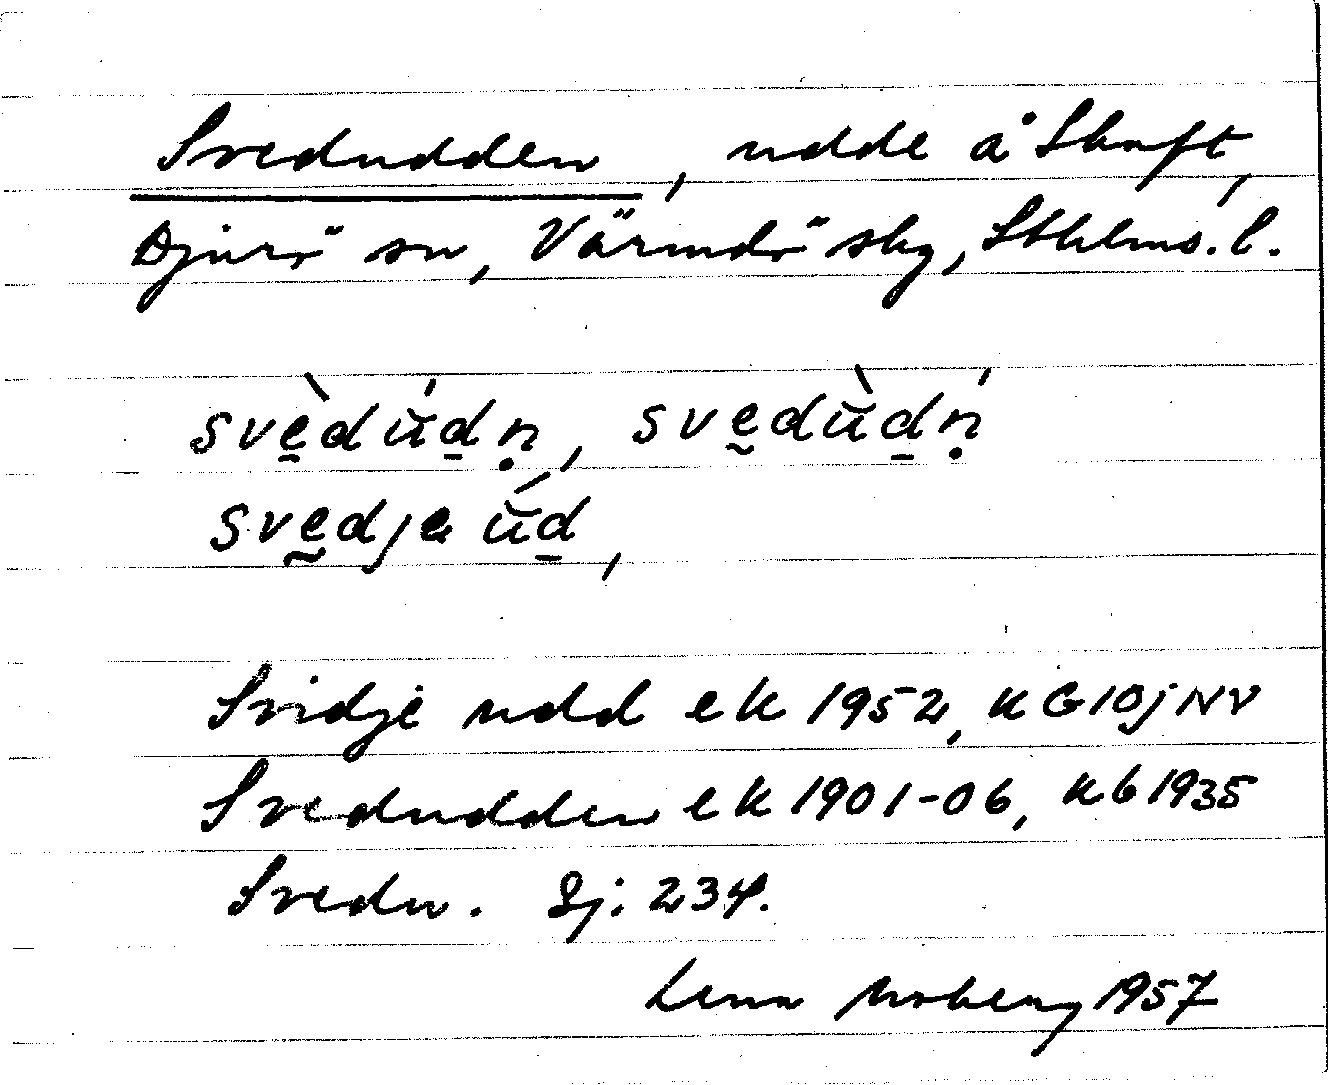 Svedudden, udde å Skuft,
Djurö sn, Värmdö skg, Sthlms. l.
svèdúdṇ, svedùdṇ́
svedjeúd,
Svidje udd ek 1952, K G10j NV
Svedudden ek 1901-06, kb 1935
Svedu. Sj. 234.
Lena Moberg 1957